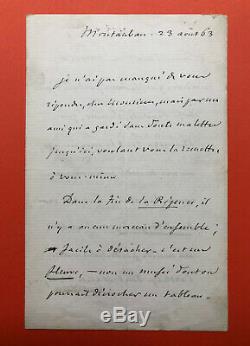 Montauban - 23 août 63
je n'ai pas manqué de vous
répondre, cher Monsieur, mais par un
ami qui a gardé sans doute ma lettre
jusqu'ici, voulant vous la remettre
à vous-même
Dans la Fin de la Régence, il
n'y a aucun morceau d'ensemble,
facile à détacher - c'est un
fleuve, - non un musée dont on
pourrait décrocher un tableau.